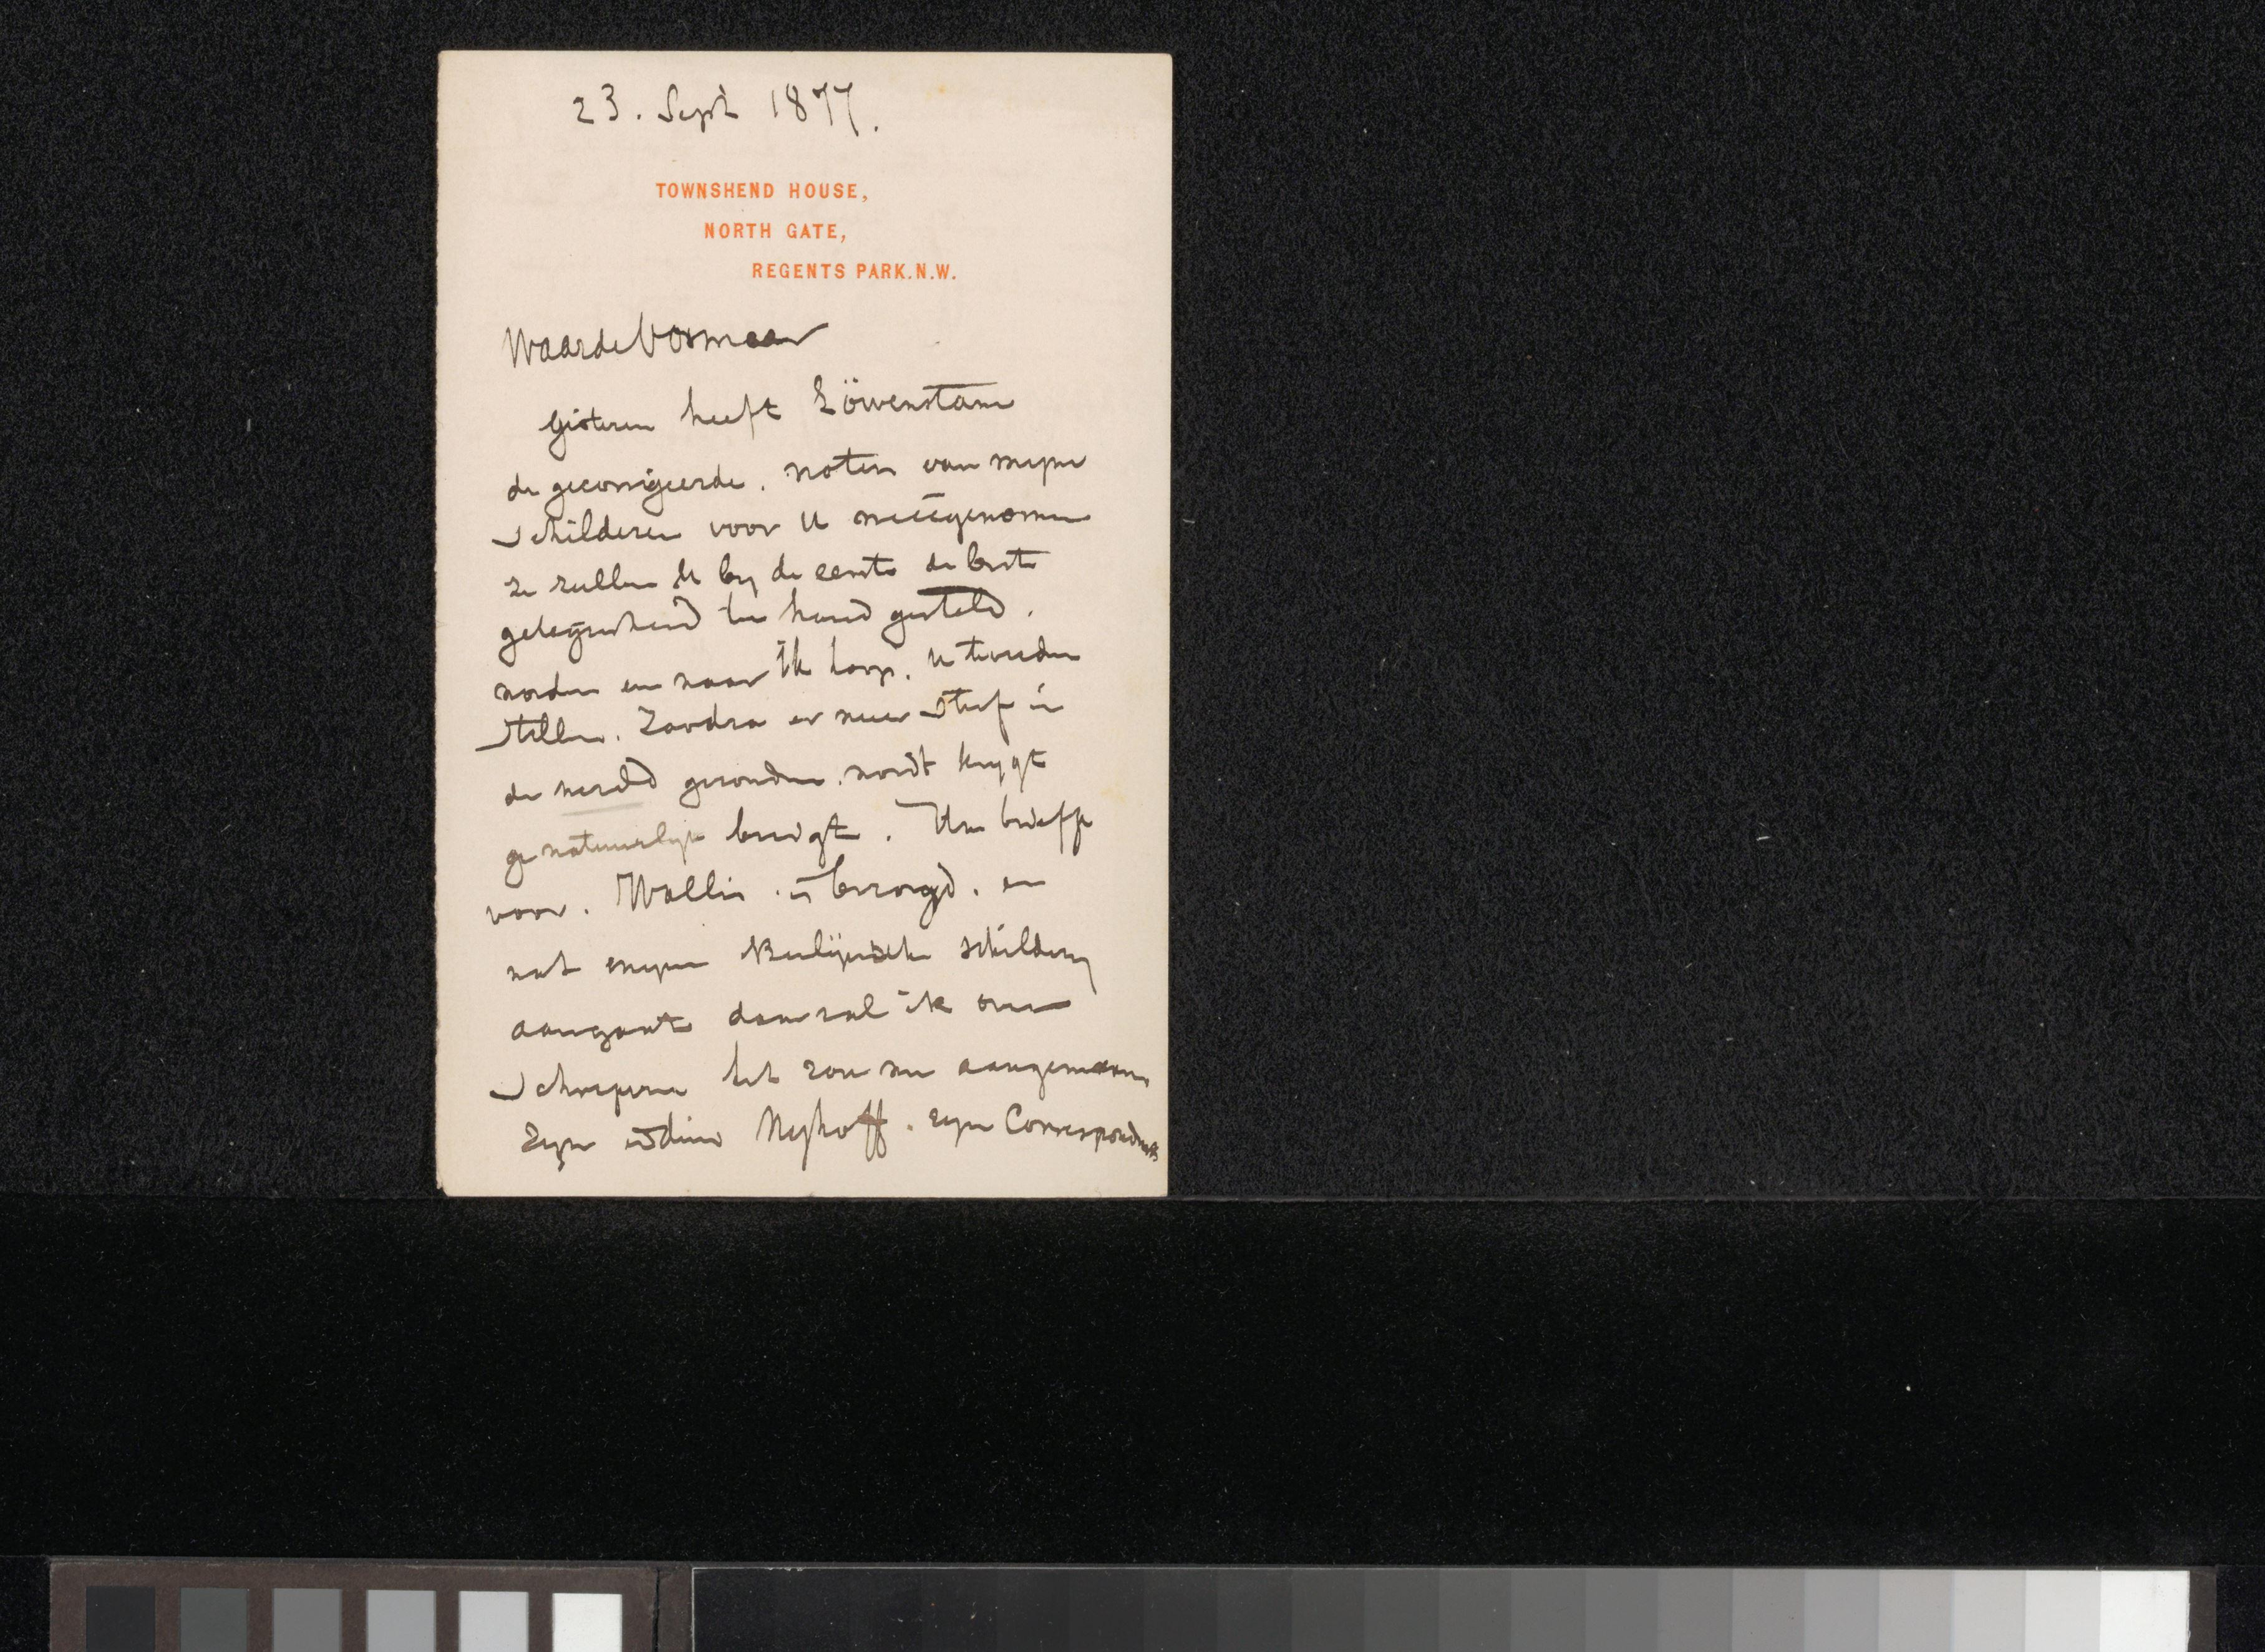 23. Sept 1877.
TOWNSHEND HOUSE,
NORTH GATE,
REGENTS PARK.N.W.
Waarde Vosmaer
Gisteren heeft Löwenstam
de gecorrigeerde. noten van myne
schilderen voor U meêgenomen
ze zullen U by de eerste de beste
gelegenheid ter hand gesteld.
worden en naar ik hoop. U tevreden
stellen. Zoodra er meer stof in
de wereld gezonden. wordt krygt
ge natuurlyk berigt. Uw briefje
voor. Wallis. is bezorgd. en
wat myne Berlijnsche schildery
aangaat daar zal ik over
schryven het zou me aangenaam
zyn indien Nyhoff. zyn Correspondent